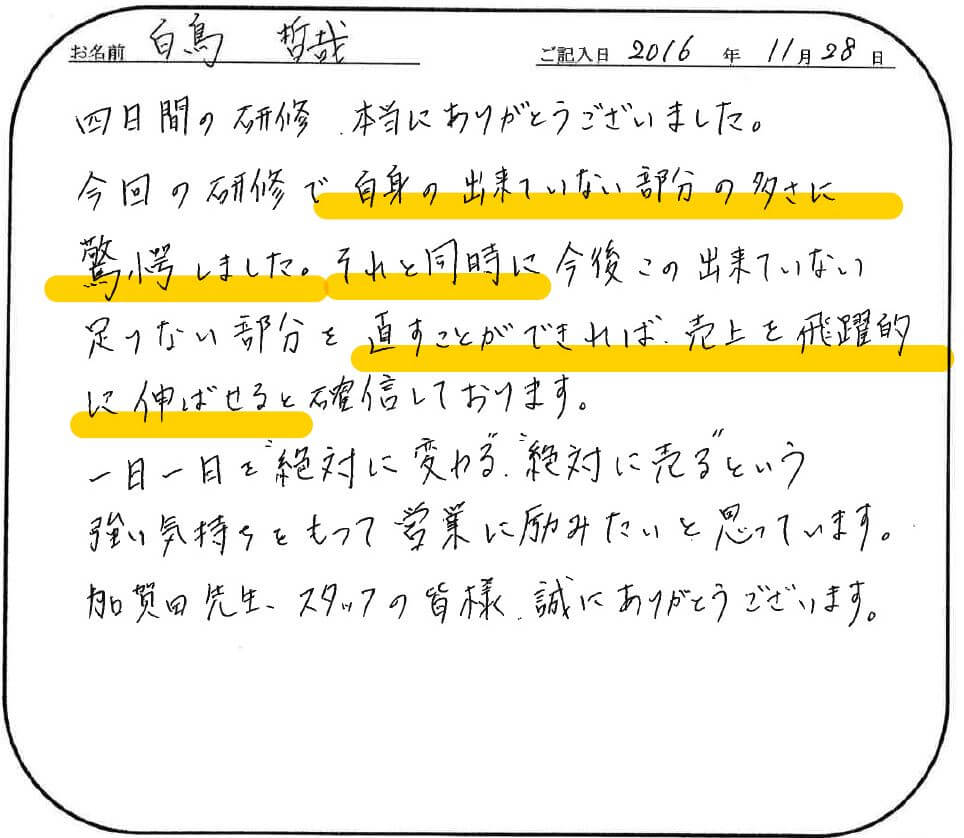 お名前 白鳥 哲哉 ご記入日 2016 年 11 月 28 日
四日間の研修、本当にありがとうございました。
今回の研修で自身の出来ていない部分の多さに
驚愕しました。それと同時に今後この出来ていない
足りない部分を直すことができれば、売上を飛躍的
に伸ばせると確信しております。
一日一日を“絶対に変わる”、“絶対に売る”という
強い気持ちをもって営業に励みたいと思っています。
加賀田先生、スタッフの皆様、誠にありがとうございます。